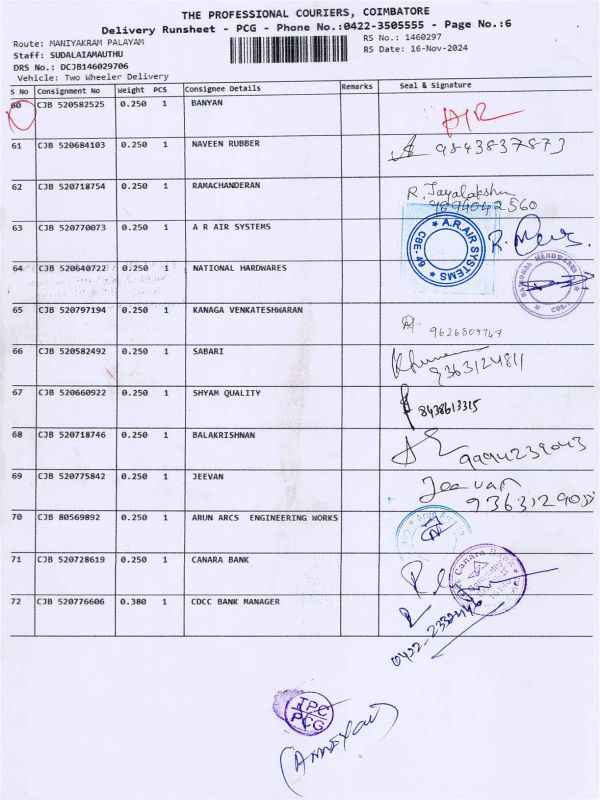 THE PROFESSIONAL COURIERS, COIMBATORE
Delivery Runsheet - PCG - Phone No.:0422-3505555 - Page No.:6
Route: MANIYAKRAM PALAYAM
RS No.: 1460297
Staff: SUDALAIAMAUTHU
RS Date: 16-Nov-2024
DRS No.: DCJB146029706
Vehicle: Two Wheeler Delivery
S No Consignment No Weight PCS Consignee Details Remarks Seal & Signature
60 CJB 520582525 0.250 1 BANYAN
61 CJB 520684103 0.250 1 NAVEEN RUBBER 9843837873
62 CJB 520718754 0.250 1 RAMACHANDERAN R. Jayalakshmi
9894042560
63 CJB 520770073 0.250 1 A R AIR SYSTEMS A.R.AIR SYSTEMS CBE-49
64 CJB 520640722 0.250 1 NATIONAL HARDWARES NATIONAL HARDWARES
65 CJB 520797194 0.250 1 KANAGA VENKATESHWARAN 9626809747
66 CJB 520582492 0.250 1 SABARI 9363124811
67 CJB 520660922 0.250 1 SHYAM QUALITY 8438613315
68 CJB 520718746 0.250 1 BALAKRISHNAN 9994239043
69 CJB 520775842 0.250 1 JEEVAN Jeevan
70 CJB 80569892 0.250 1 ARUN ARCS ENGINEERING WORKS
71 CJB 520728619 0.250 1 CANARA BANK Canara Bank
72 CJB 520776606 0.380 1 CDCC BANK MANAGER
TPC
PCG